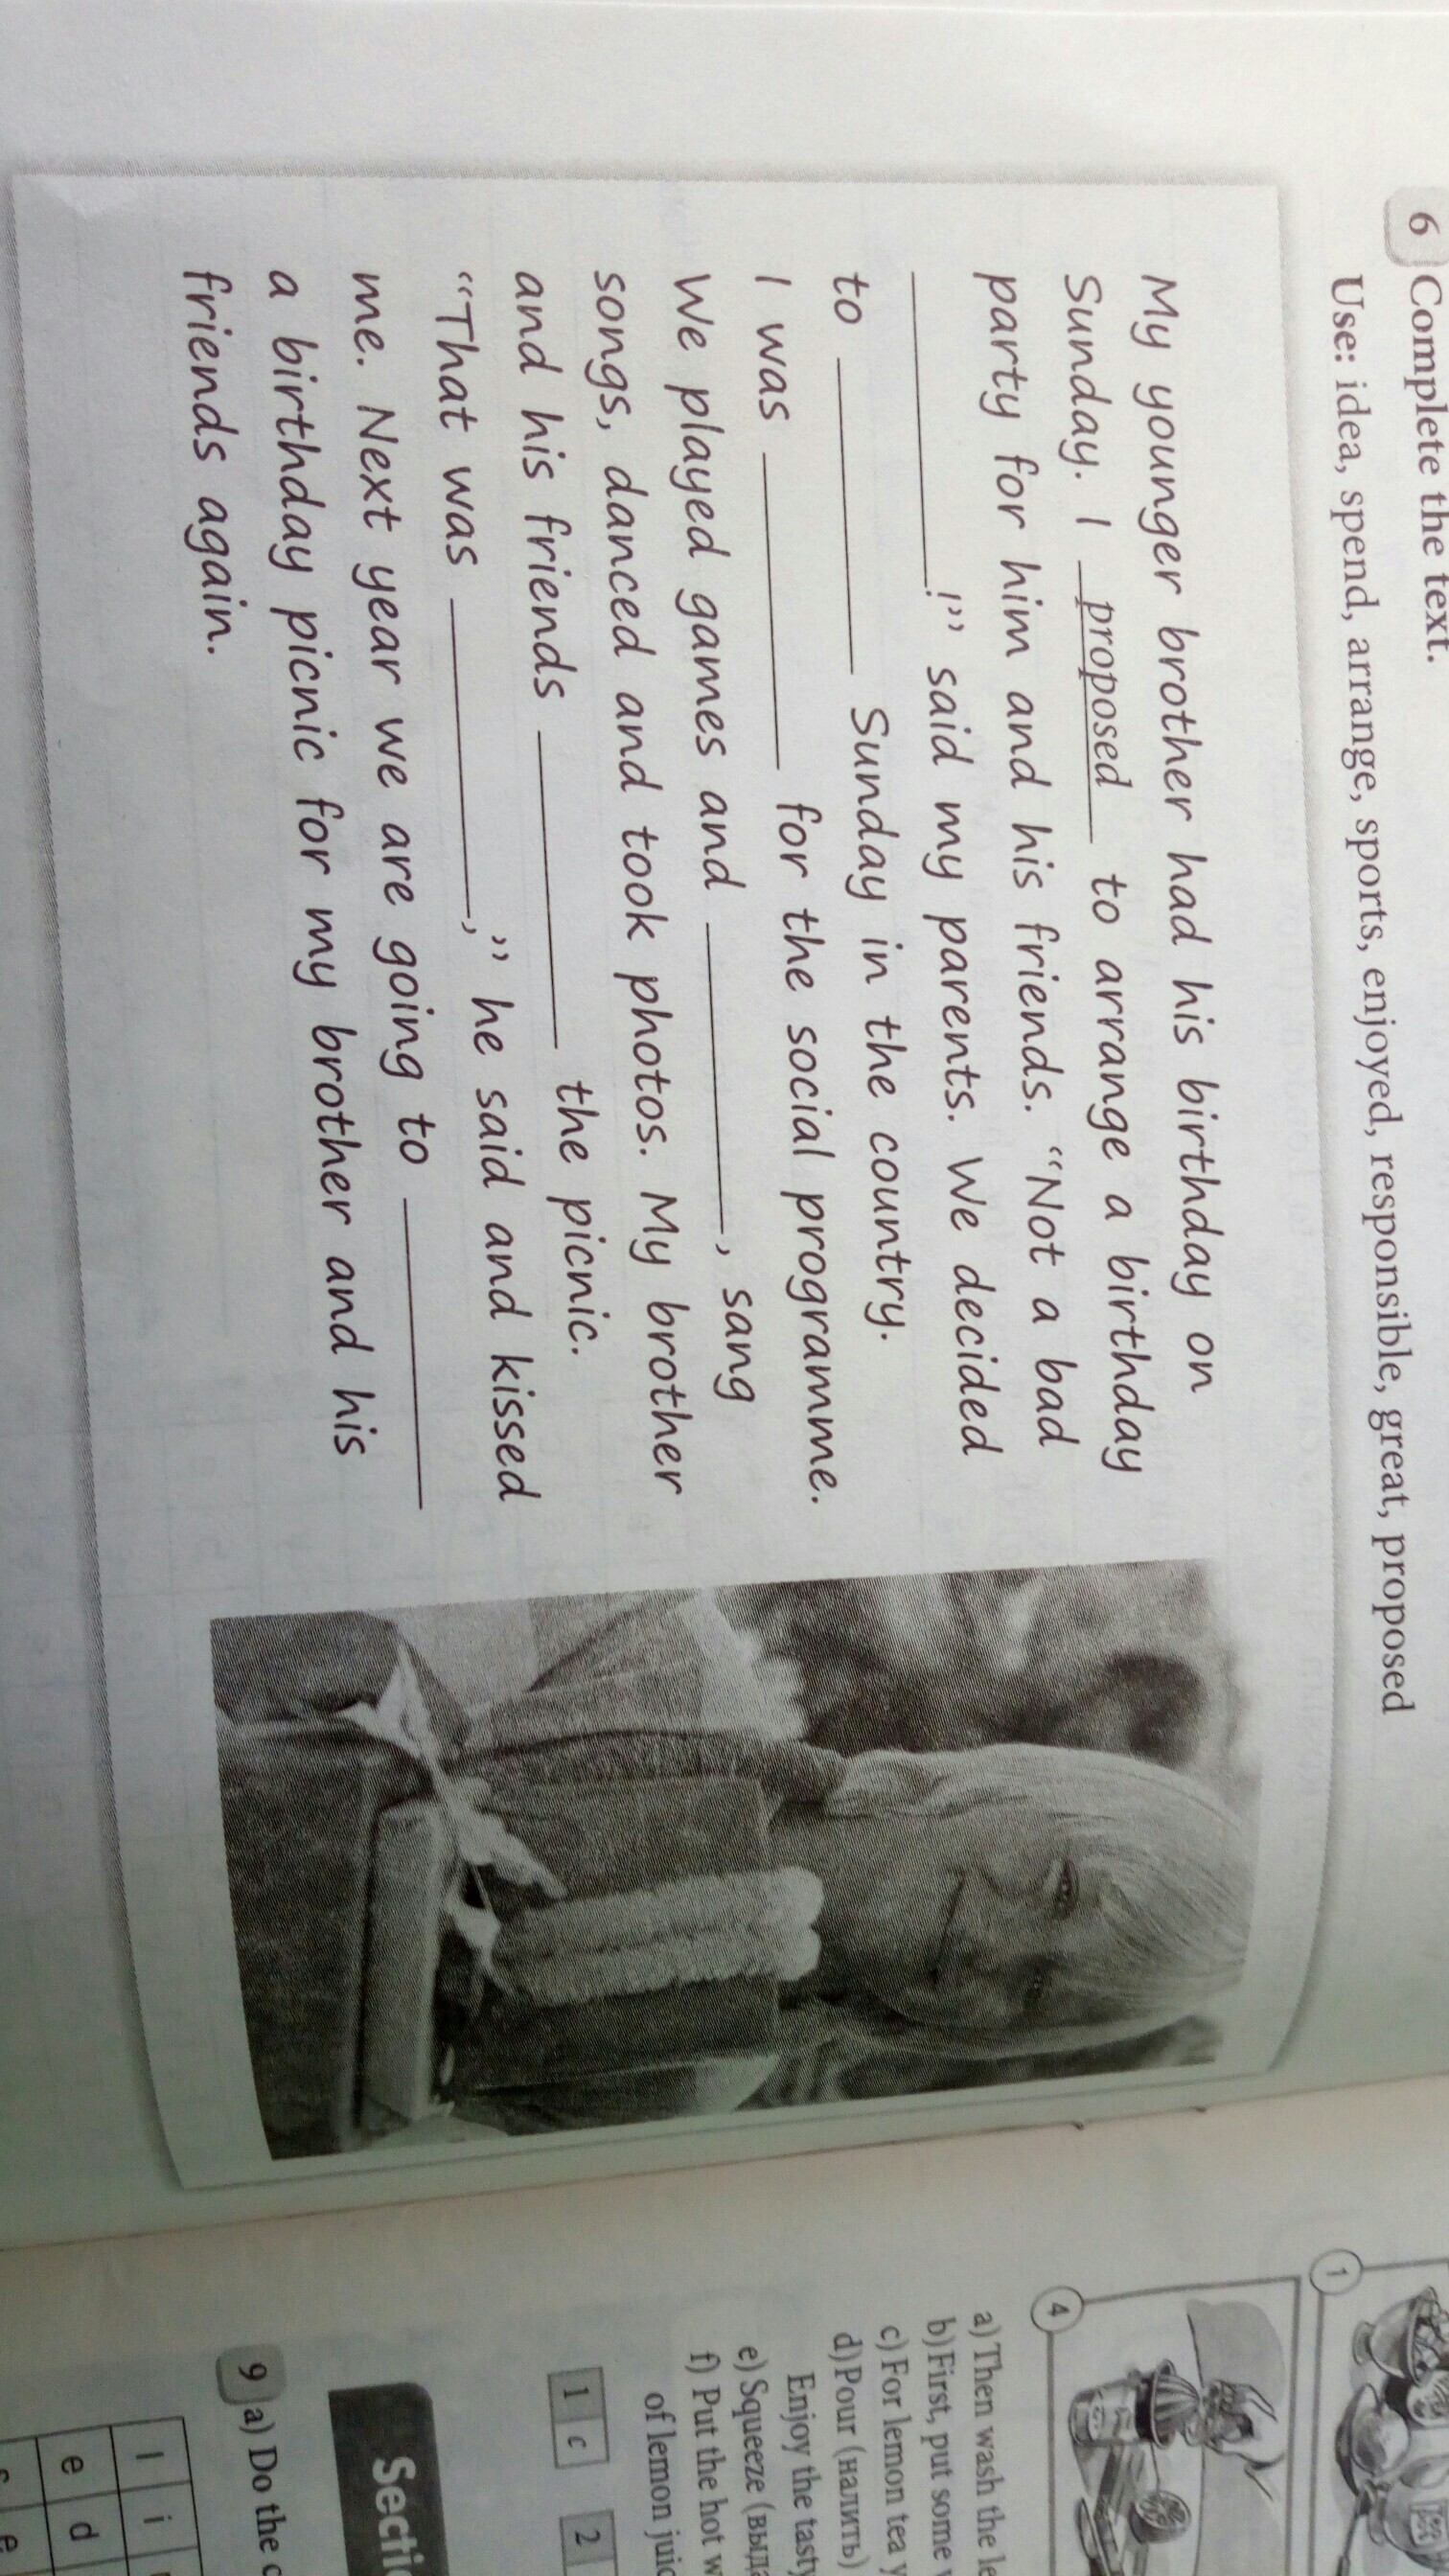 6 Complete the text.
Use: idea, spend, arrange, sports, enjoyed, responsible, great, proposed
My younger brother had his birthday on
Sunday. I proposed to arrange a birthday
party for him and his friends. "Not a bad
__________!" said my parents. We decided
to __________ Sunday in the country.
I was __________ for the social programme.
We played games and __________, sang
songs, danced and took photos. My brother
and his friends __________ the picnic.
"That was __________," he said and kissed
me. Next year we are going to __________
a birthday picnic for my brother and his
friends again.
1
4
a) Then wash the
b) First, put some
c) For lemon tea
d) Pour (налить)
Enjoy the tasty
e) Squeeze
f) Put the hot
of lemon
1 c 2
9 a) Do the
l i
e d
e